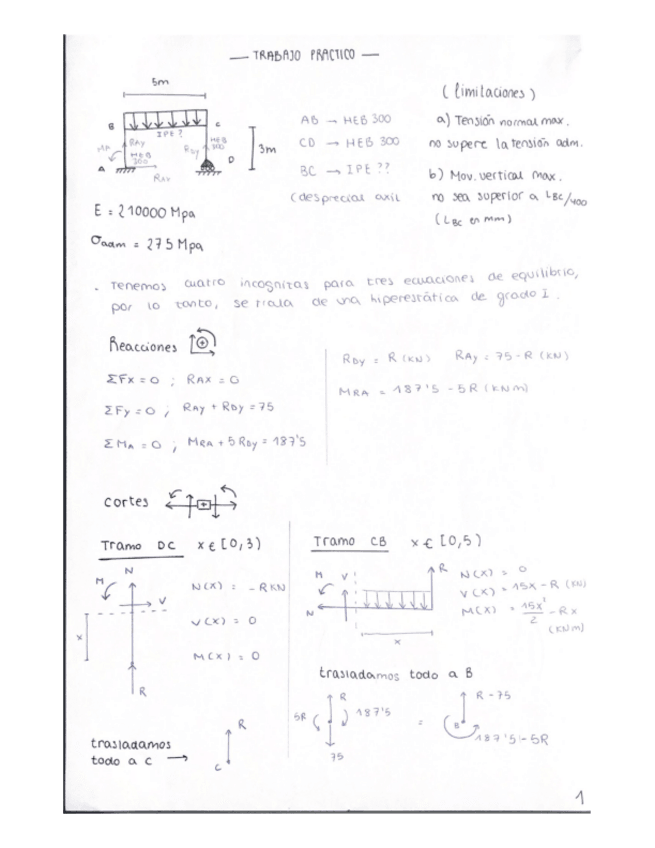 — TRABAJO PRACTICO —
5m
B
C
IPE ?
MA
RAY
HEB
300
RDY
HEB
300
D
A
RAX
3m
AB → HEB 300
CD → HEB 300
BC → IPE ??
(despreciar axil
(limitaciones)
a) Tensión normal max.
no supere la tensión adm.
b) Mov. vertical max.
no sea superior a LBC/400
(LBC en mm)
E = 210000 Mpa
σadm = 275 Mpa
. Tenemos cuatro incognitas para tres ecuaciones de equilibrio,
por lo tanto, se trata de una hiperestática de grado I.
Reacciones
ΣFx = 0 ; RAX = 0
ΣFy = 0 , RAy + RDy = 75
ΣMA = 0 ; MRA + 5 RDy = 187'5
RDy = R (KN) RAy = 75 - R (KN)
MRA = 187'5 - 5R (KNm)
cortes
Tramo DC x € [0,3)
N
M
V
x
R
N(x) = -R KN
V(x) = 0
M(x) = 0
trasladamos
todo a C →
R
C
Tramo CB x € [0,5)
M
V
R
N
x
N(x) = 0
V(x) = 15x - R (KN)
M(x) = 15x²/2 - Rx
(KNm)
trasladamos todo a B
R
5R
187'5
75
=
R - 75
B
187'5 - 5R
1